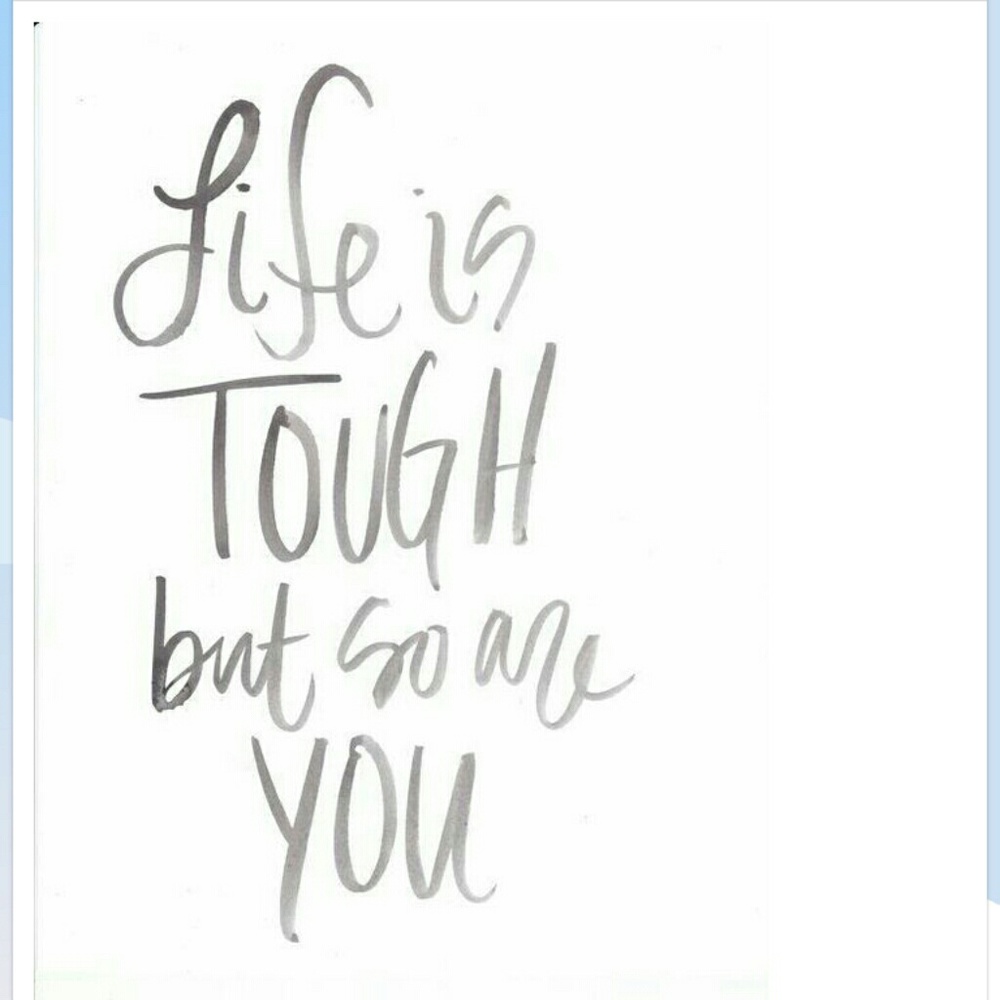 Life is
TOUGH
but so are
YOU